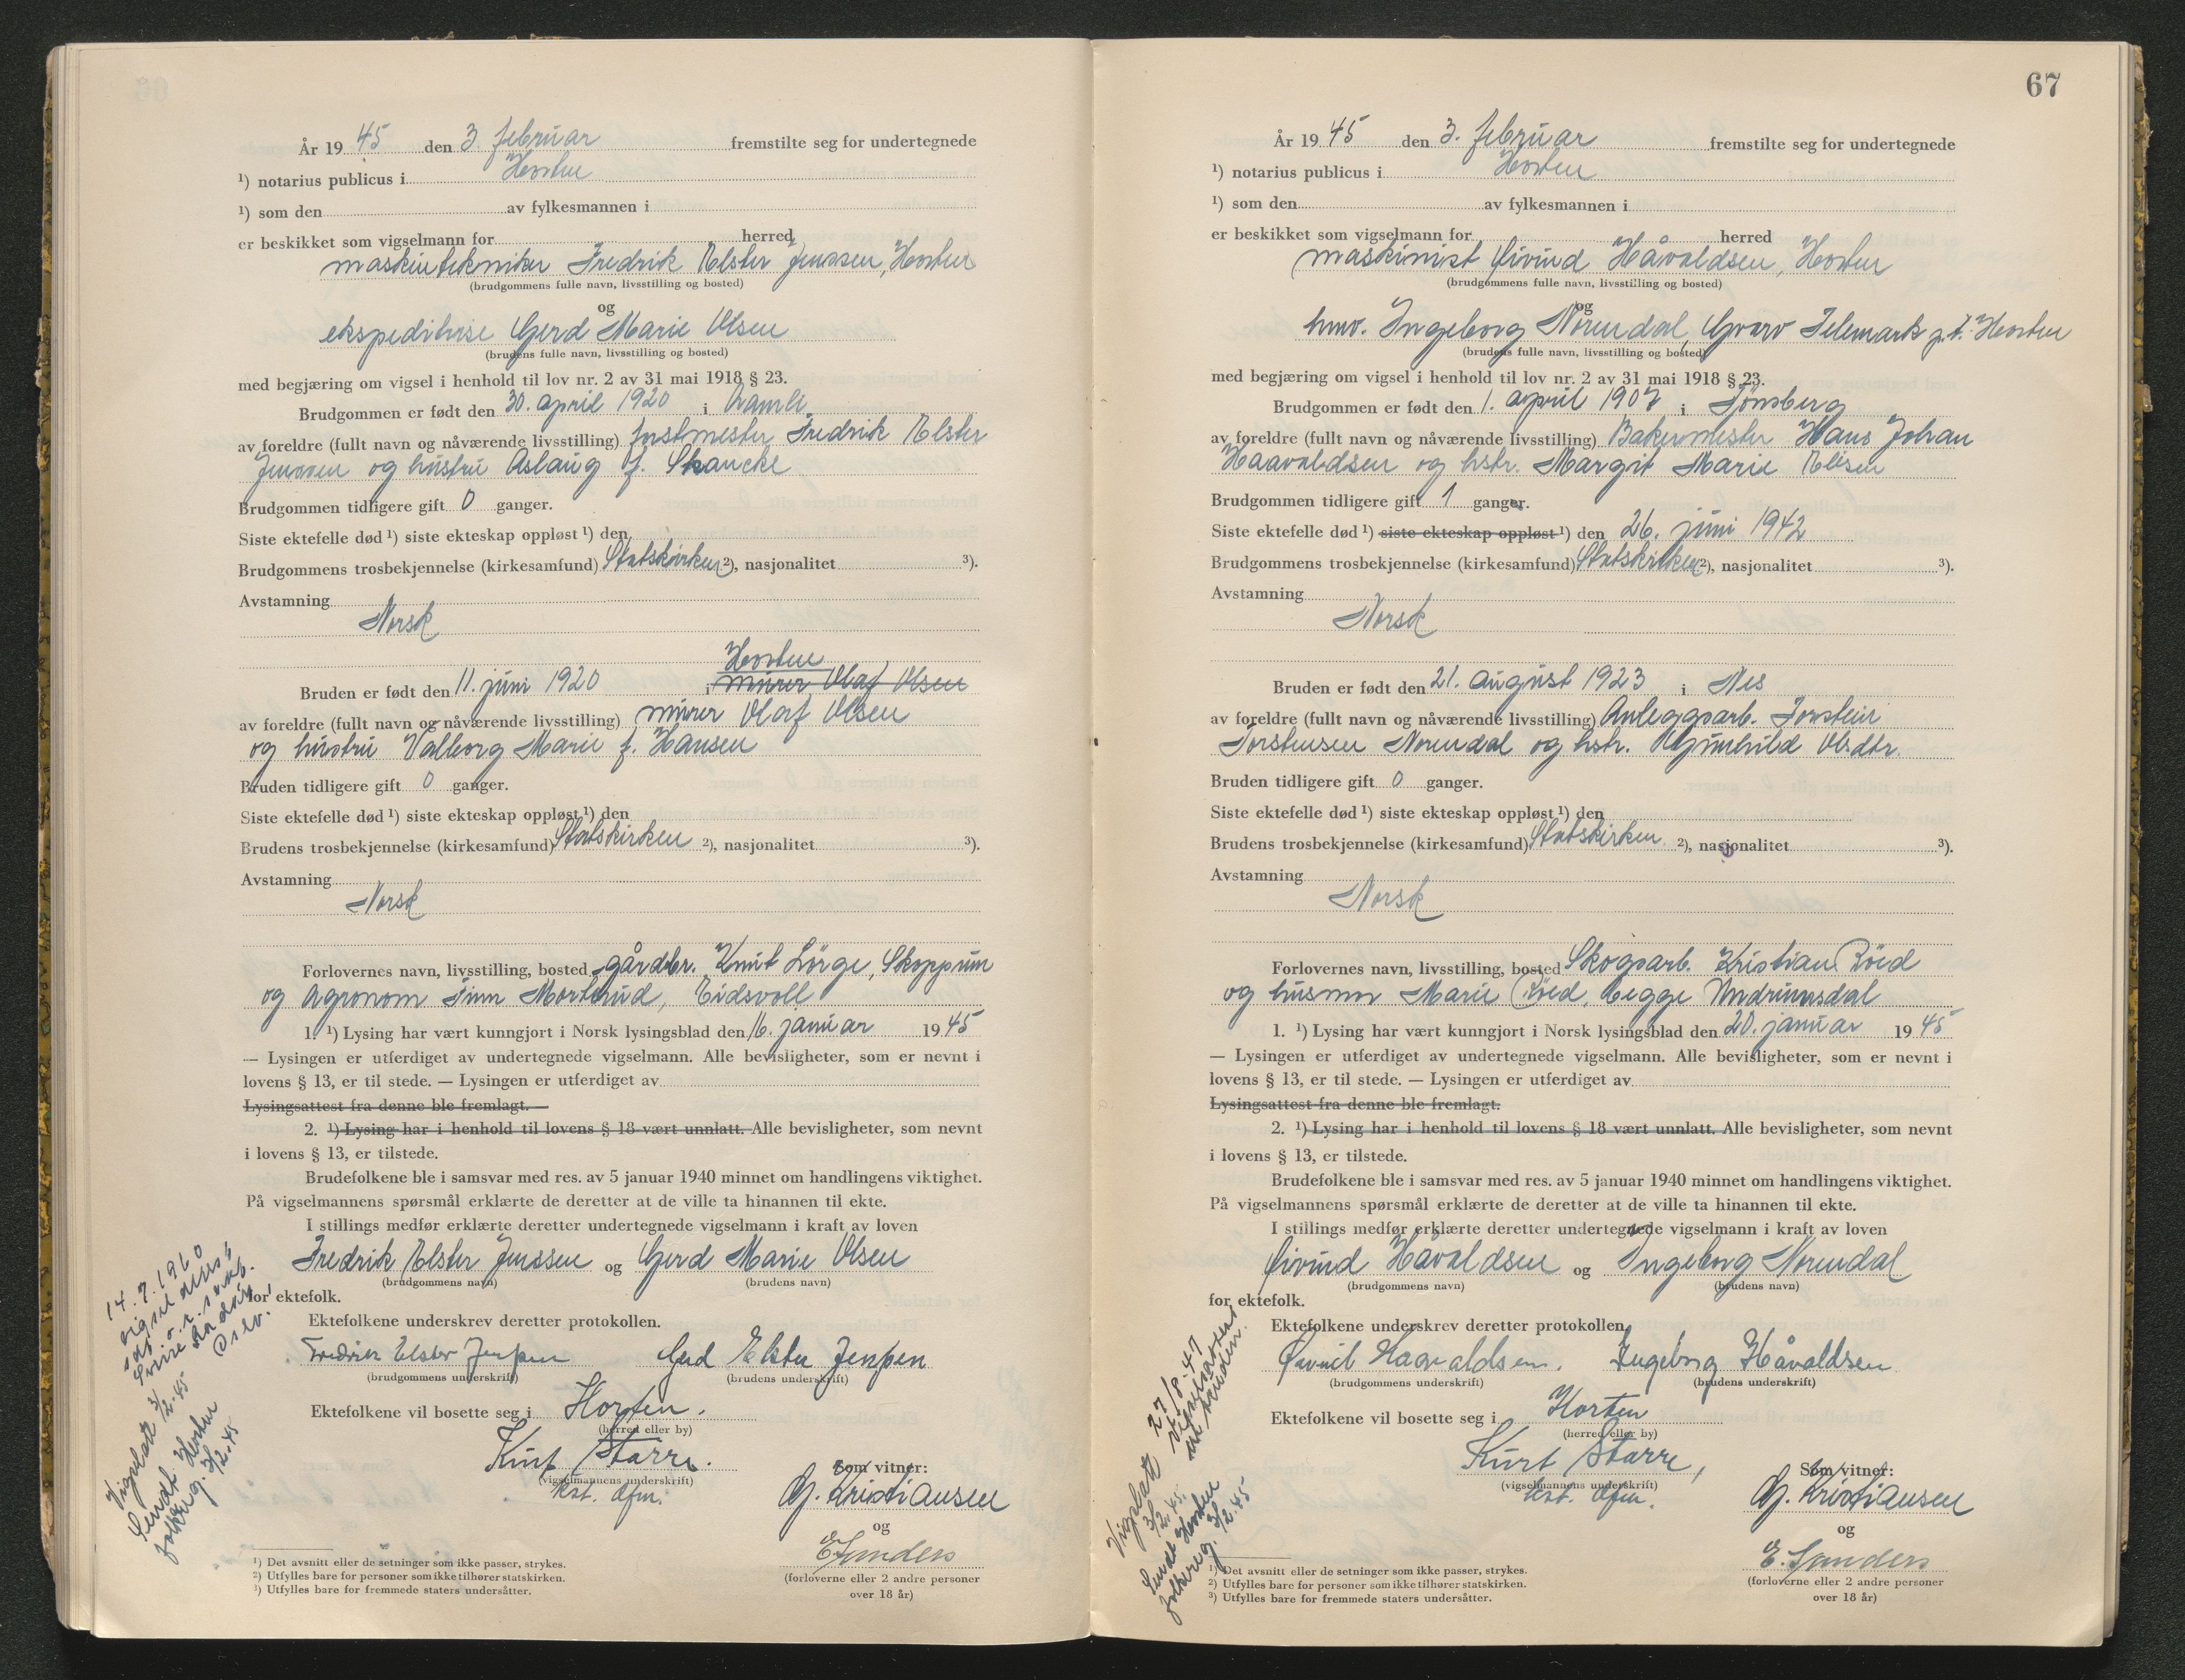 År 19 45 den 3. februar fremstilte seg for undertegnede
¹) notarius publicus i Horten
¹) som den av fylkesmannen i
er beskikket som vigselmann for herred
maskintekniker Fredrik Elster Jenssen, Horten
(brudgommens fulle navn, livsstilling og bosted)
og
ekspeditrise Gerd Marie Olsen
(brudens fulle navn, livsstilling og bosted)
med begjæring om vigsel i henhold til lov nr. 2 av 31 mai 1918 § 23.
Brudgommen er født den 30. april 1920 i
av foreldre (fullt navn og nåværende livsstilling) forstmester Fredrik Elster
Jenssen og hustru Aslaug f. Skancke
Brudgommen tidligere gift 0 ganger.
Siste ektefelle død ¹) siste ekteskap oppløst ¹) den
Brudgommens trosbekjennelse (kirkesamfund) Statskirken ²), nasjonalitet ³).
Avstamning
Norsk
Horten
Bruden er født den 11. juni 1920 i murer Olaf Olsen
av foreldre (fullt navn og nåværende livsstilling) murer Olaf Olsen
og hustru Valborg Marie f. Hansen
Bruden tidligere gift 0 ganger.
Siste ektefelle død ¹) siste ekteskap oppløst ¹) den
Brudens trosbekjennelse (kirkesamfund) Statskirken ²), nasjonalitet ³).
Avstamning
Norsk
Forlovernes navn, livsstilling, bosted gårdbr. Knut Lörge, Skoppum
og Agronom Finn Morterud, Eidsvoll
1. ¹) Lysing har vært kunngjort i Norsk lysingsblad den 16. januar 19 45
— Lysingen er utferdiget av undertegnede vigselmann. Alle bevisligheter, som er nevnt i
lovens § 13, er til stede. — Lysingen er utferdiget av
Lysingsattest fra denne ble fremlagt. —
2. ¹) Lysing har i henhold til lovens § 18 vært unnlatt. Alle bevisligheter, som nevnt
i lovens § 13, er tilstede.
Brudefolkene ble i samsvar med res. av 5 januar 1940 minnet om handlingens viktighet.
På vigselmannens spørsmål erklærte de deretter at de ville ta hinannen til ekte.
I stillings medfør erklærte deretter undertegnede vigselmann i kraft av loven
Fredrik Elster Jenssen og Gerd Marie Olsen
(brudgommens navn) (brudens navn)
for ektefolk.
Ektefolkene underskrev deretter protokollen.
Fredrik Elster Jenssen Gerd Elster Jenssen
(brudgommens underskrift) (brudens underskrift)
Ektefolkene vil bosette seg i Horten.
(herred eller by)
Kurt Starre.
(vigselmannens underskrift)
kst. Ofm.
Som vitner:
Gj. Kristiansen
og
E. Sanders
(forloverne eller 2 andre personer
over 18 år)
14.7.1960
Oslo.
Vigslatt 3/2-45
Sendt Horten
folkereg. 3/2.45
¹) Det avsnitt eller de setninger som ikke passer, strykes.
²) Utfylles bare for personer som ikke tilhører statskirken.
³) Utfylles bare for fremmede staters undersåtter.
67
År 19 45 den 3. februar fremstilte seg for undertegnede
¹) notarius publicus i Horten
¹) som den av fylkesmannen i
er beskikket som vigselmann for herred
maskinist Øivind Håvaldsen, Horten
(brudgommens fulle navn, livsstilling og bosted)
og
hmv. Ingeborg Norendal, Gvarv Telemark p.t. Horten
(brudens fulle navn, livsstilling og bosted)
med begjæring om vigsel i henhold til lov nr. 2 av 31 mai 1918 § 23.
Brudgommen er født den 1. april 1907 i Tönsberg
av foreldre (fullt navn og nåværende livsstilling) Bakermester Hans Johan
Haavaldsen og hstr. Margit Marie Elisen
Brudgommen tidligere gift 1 ganger.
Siste ektefelle død ¹) siste ekteskap oppløst ¹) den 26. juni 1942
Brudgommens trosbekjennelse (kirkesamfund) Statskirken ²), nasjonalitet ³).
Avstamning
Norsk
Bruden er født den 21. august 1923 i Nes
av foreldre (fullt navn og nåværende livsstilling) Anleggsarb. Torstein
Torstensen Norendal og hstr. Gunhild Olsdtr.
Bruden tidligere gift 0 ganger.
Siste ektefelle død ¹) siste ekteskap oppløst ¹) den
Brudens trosbekjennelse (kirkesamfund) Statskirken ²), nasjonalitet ³).
Avstamning
Norsk
Forlovernes navn, livsstilling, bosted Skogsarb. Kristian Röed
og husmor Marie Röed, begge Undrumsdal
1. ¹) Lysing har vært kunngjort i Norsk lysingsblad den 20. januar 19 45
— Lysingen er utferdiget av undertegnede vigselmann. Alle bevisligheter, som er nevnt i
lovens § 13, er til stede. — Lysingen er utferdiget av
Lysingsattest fra denne ble fremlagt.
2. ¹) Lysing har i henhold til lovens § 18 vært unnlatt. Alle bevisligheter, som nevnt
i lovens § 13, er tilstede.
Brudefolkene ble i samsvar med res. av 5 januar 1940 minnet om handlingens viktighet.
På vigselmannens spørsmål erklærte de deretter at de ville ta hinannen til ekte.
I stillings medfør erklærte deretter undertegnede vigselmann i kraft av loven
Øivind Håvaldsen og Ingeborg Norendal
(brudgommens navn) (brudens navn)
for ektefolk.
Ektefolkene underskrev deretter protokollen.
Øivind Haavaldsen. Ingeborg Håvaldsen
(brudgommens underskrift) (brudens underskrift)
Ektefolkene vil bosette seg i Horten
(herred eller by)
Kurt Starre,
(vigselmannens underskrift)
kst. Ofm.
Som vitner:
Gj. Kristiansen
og
E. Sanders
(forloverne eller 2 andre personer
over 18 år)
27/8-47
Vigselsattest
til bruden.
Vigslatt 3/2.45.
Sendt Horten
folkereg. 3/2.45
¹) Det avsnitt eller de setninger som ikke passer, strykes.
²) Utfylles bare for personer som ikke tilhører statskirken.
³) Utfylles bare for fremmede staters undersåtter.